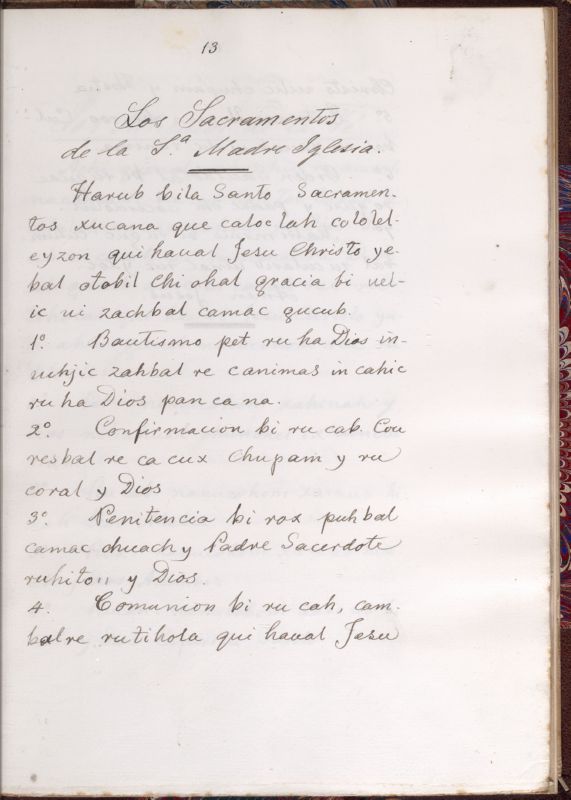 13
Los Sacramentos
de la S.ª Madre Iglesia.
Harub bila Santo Sacramen-
tos xucana que caloclah cololel-
eyzon qui haual Jesu Christo ye-
bal otobil Chi ohal gracia bi uel-
ic ui zachbal camac qucub.
1º. Bautismo pet ru ha Dios in-
uchjic zahbal re canimas in cahic
ru ha Dios pan ca na.
2º. Confirmacion bi ru cab. Cou
resbal re ca cux Chupam y ru
coral y Dios
3º. Penitencia bi rox puhbal
camac chuach y Padre Sacerdote
ruhiton y Dios.
4. Comunion bi ru cah, cam-
balre rutihola qui haual Jesu